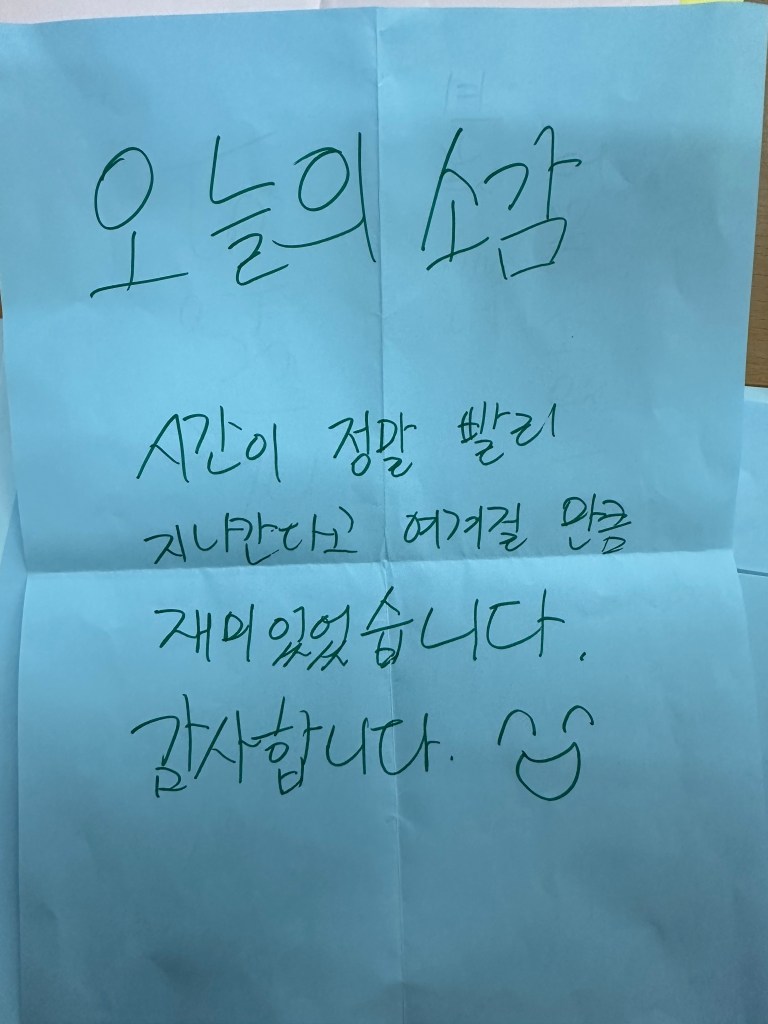 오늘의 소감
시간이 정말 빨리
지나간다고 여겨질 만큼
재미있었습니다.
감사합니다.